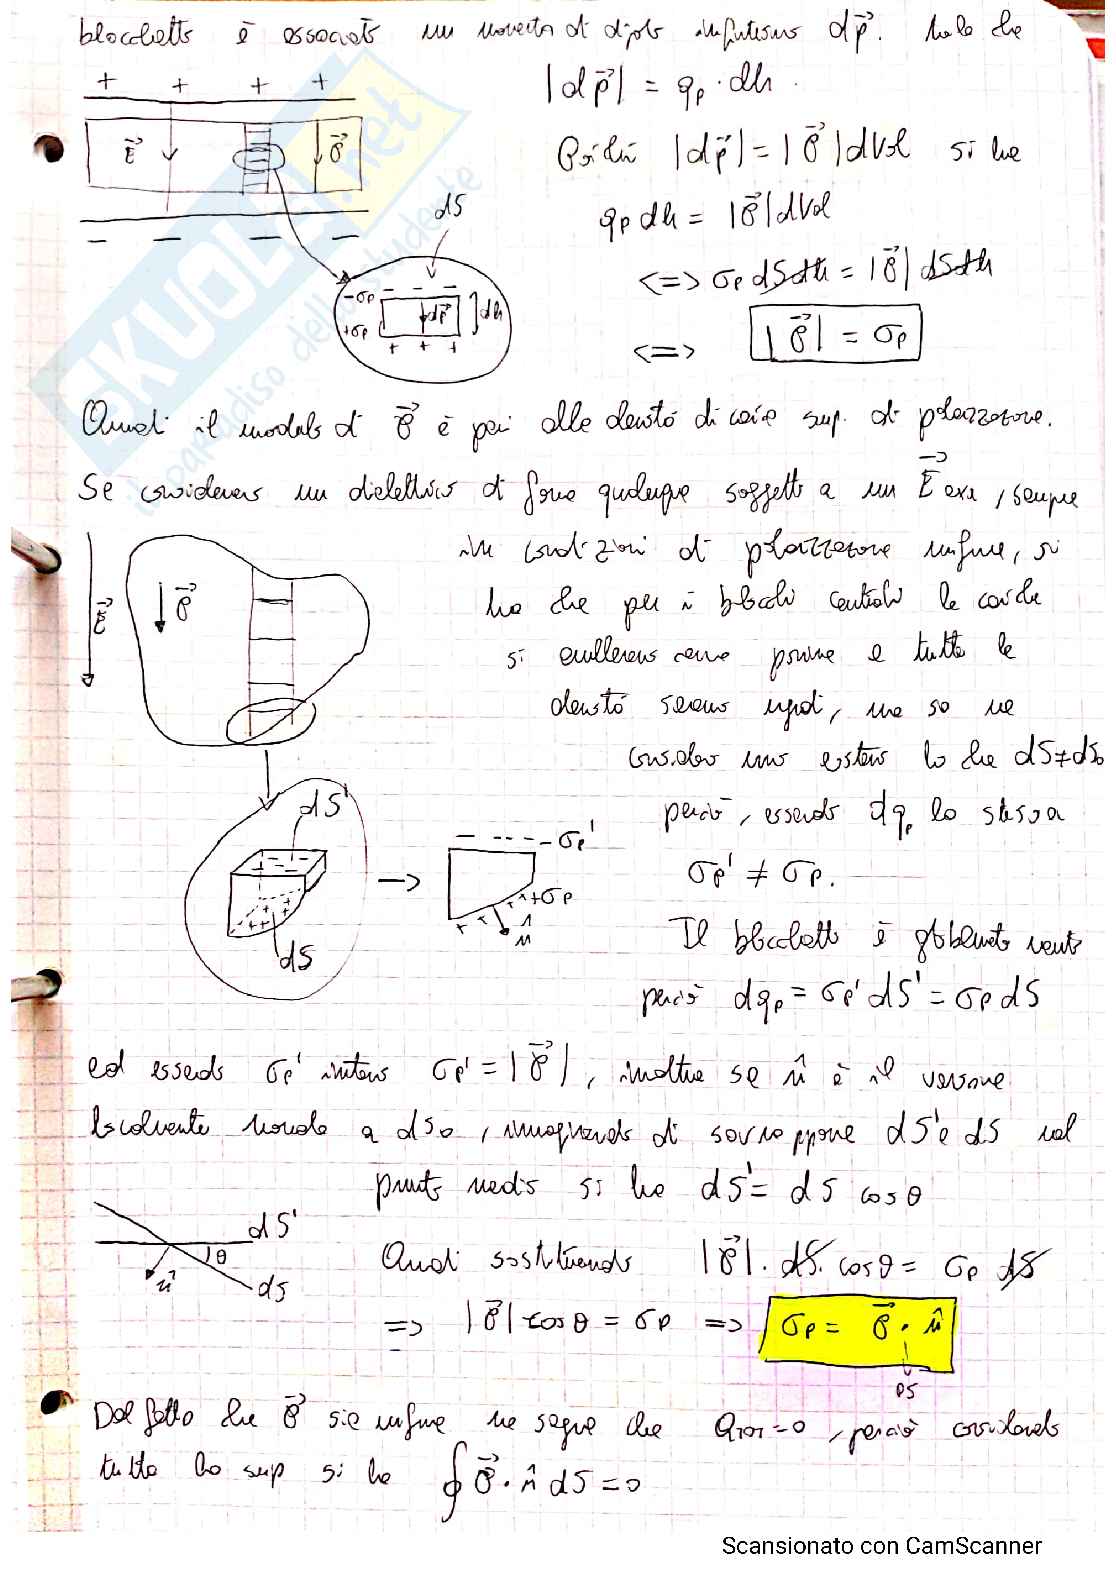 blocchetto è associato un momento di dipolo infinitesimo d𝑝⃗. tale che
+ + + +
|d𝑝⃗| = qₚ · dh.
E⃗ P⃗
Poiché |d𝑝⃗| = |P⃗| dVol si ha
qₚ dh = |P⃗| dVol
dS
<=> σₚ dS dh = |P⃗| dS dh
− − − −
−σₚ − − −
dp⃗ dh
+σₚ
+ + +
<=> |P⃗| = σₚ
Quindi il modulo di P⃗ è pari alla densità di carica sup. di polarizzazione.
Se consideriamo un dielettrico di forma qualunque soggetto a un E⃗ , sempre
in condizioni di polarizzazione uniforme, si
E⃗ P⃗
ha che per i blocchi centrali le cariche
si annulleranno come prima e tutte le
densità saranno uguali, ma se ne
considero uno esterno ho che dS ≠ dS₀
dS'
perciò, essendo dqₚ la stessa
− --- − σₚ'
σₚ' ≠ σₚ.
+σₚ
n̂
dS
Il blocchetto è globalmente neutro
perciò dqₚ = σₚ' dS' = σₚ dS
ed essendo σₚ' interno σₚ' = |P⃗|, inoltre se n̂ è il versore
localmente normale a dS₀, immaginando di sovrapporre dS' e dS nel
punto medio si ha dS' = dS cosθ
dS'
θ
n̂ dS
Quindi sostituendo |P⃗| · dS · cosθ = σₚ dS
=> |P⃗| cosθ = σₚ => σₚ = P⃗ · n̂
PS
Dal fatto che P⃗ sia uniforme ne segue che Q_TOT = 0, perciò considerando
tutta la sup si ha ∮ P⃗ · n̂ dS = 0
SKUOLA.net
il paradiso dello studente
Scansionato con CamScanner